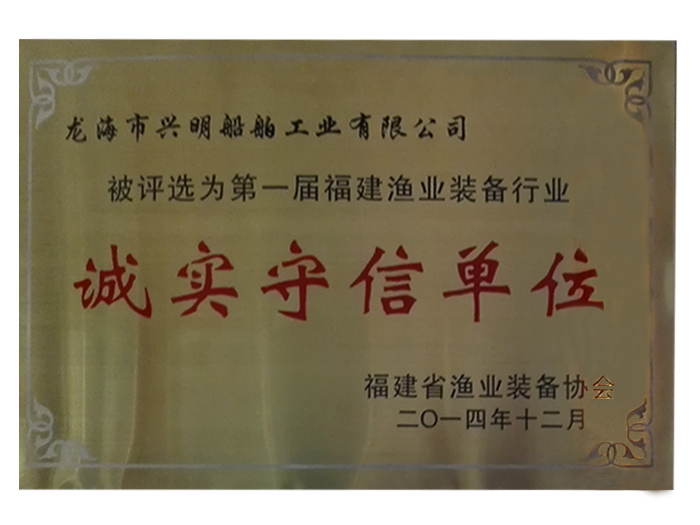 龙海市兴明船舶工业有限公司
被评选为第一届福建渔业装备行业
诚实守信单位
福建省渔业装备协会
二〇一四年十二月